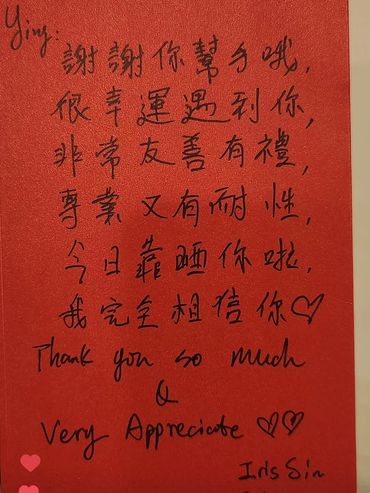 Ying:
謝謝你幫手哦,
很幸運遇到你,
非常友善有禮,
專業又有耐性,
今日靠晒你啦,
我完全相信你♡
Thank you so much
&
Very Appreciate ♡♡
Iris Sin